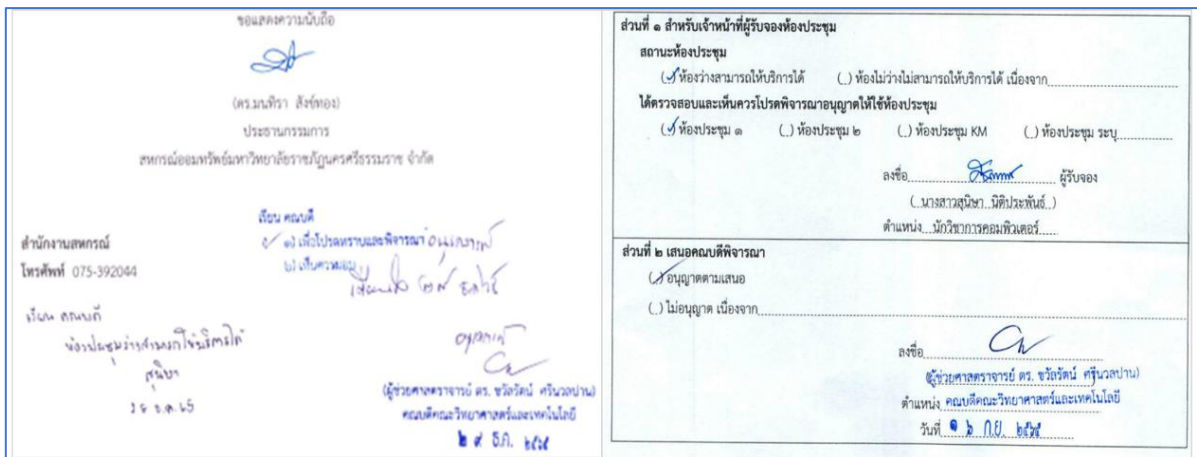 ขอแสดงความนับถือ
(ดร.มนทิรา สังข์ทอง)
ประธานกรรมการ
สหกรณ์ออมทรัพย์มหาวิทยาลัยราชภัฏนครศรีธรรมราช จำกัด
เรียน คณบดี
๑) เพื่อโปรดทราบและพิจารณา
๒) เห็นควรมอบ
สำนักงานสหกรณ์
โทรศัพท์ 075-392044
เรียน คณบดี
ห้องประชุมว่างสามารถให้บริการได้
สุนิษา
ธ.ค. 65
อนุญาต
(ผู้ช่วยศาสตราจารย์ ดร. ชวัลรัตน์ ศรีนวลปาน)
คณบดีคณะวิทยาศาสตร์และเทคโนโลยี
๒๙ ธ.ค. ๒๕๖๕
ส่วนที่ ๑ สำหรับเจ้าหน้าที่ผู้รับจองห้องประชุม
สถานะห้องประชุม
(✓) ห้องว่างสามารถให้บริการได้ (_) ห้องไม่ว่างไม่สามารถให้บริการได้ เนื่องจาก
ได้ตรวจสอบและเห็นควรโปรดพิจารณาอนุญาตให้ใช้ห้องประชุม
(✓) ห้องประชุม ๑ (_) ห้องประชุม ๒ (_) ห้องประชุม KM (_) ห้องประชุม ระบุ
ลงชื่อ ผู้รับจอง
(นางสาวสุนิษา นิติประพันธ์)
ตำแหน่ง นักวิชาการคอมพิวเตอร์
ส่วนที่ ๒ เสนอคณบดีพิจารณา
(✓) อนุญาตตามเสนอ
(_) ไม่อนุญาต เนื่องจาก
ลงชื่อ
(ผู้ช่วยศาสตราจารย์ ดร. ชวัลรัตน์ ศรีนวลปาน)
ตำแหน่ง คณบดีคณะวิทยาศาสตร์และเทคโนโลยี
วันที่ ๑๖ ก.ย. ๒๕๖๕